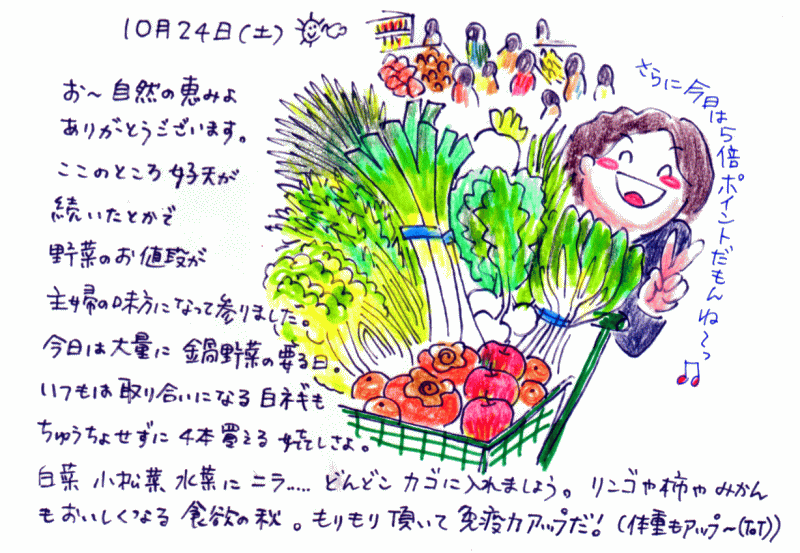 10月24日(土)
お〜自然の恵みよ
ありがとうございます。
ここのところ好天が
続いたとかで
野菜のお値段が
主婦の味方になって参りました。
今日は大量に鍋野菜の要る日。
いつもは取り合いになる白ネギも
ちゅうちょせずに4本買える嬉しさよ。
白菜 小松菜 水菜に ニラ..... どんどん カゴに入れましょう。 リンゴや柿や みかん
もおいしくなる 食欲の秋。もりもり 頂いて 免疫力アップだ! (体重もアップ〜(ToT))
さらに今日は5倍ポイントだもんね〜っ